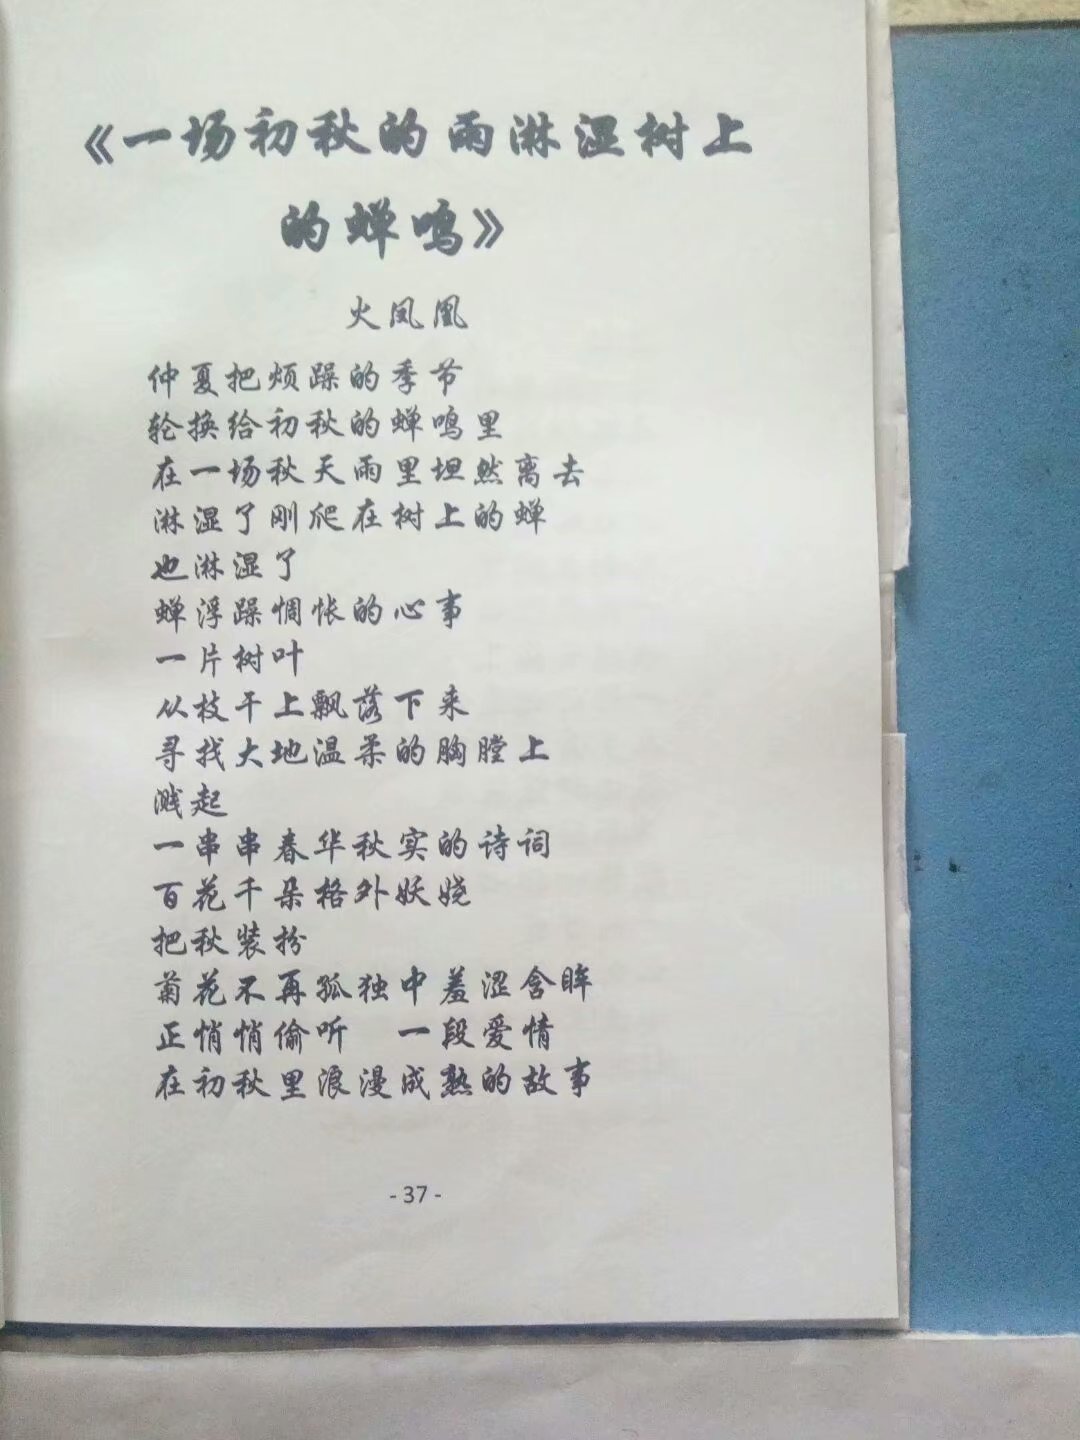 《一场初秋的雨淋湿树上
的蝉鸣》
火凤凰
仲夏把烦躁的季节
轮换给初秋的蝉鸣里
在一场秋天雨里坦然离去
淋湿了刚爬在树上的蝉
也淋湿了
蝉浮躁惆怅的心事
一片树叶
从枝干上飘落下来
寻找大地温柔的胸膛上
溅起
一串串春华秋实的诗词
百花千朵格外妖娆
把秋装扮
菊花不再孤独中羞涩含眸
正悄悄偷听　一段爱情
在初秋里浪漫成熟的故事
- 37 -